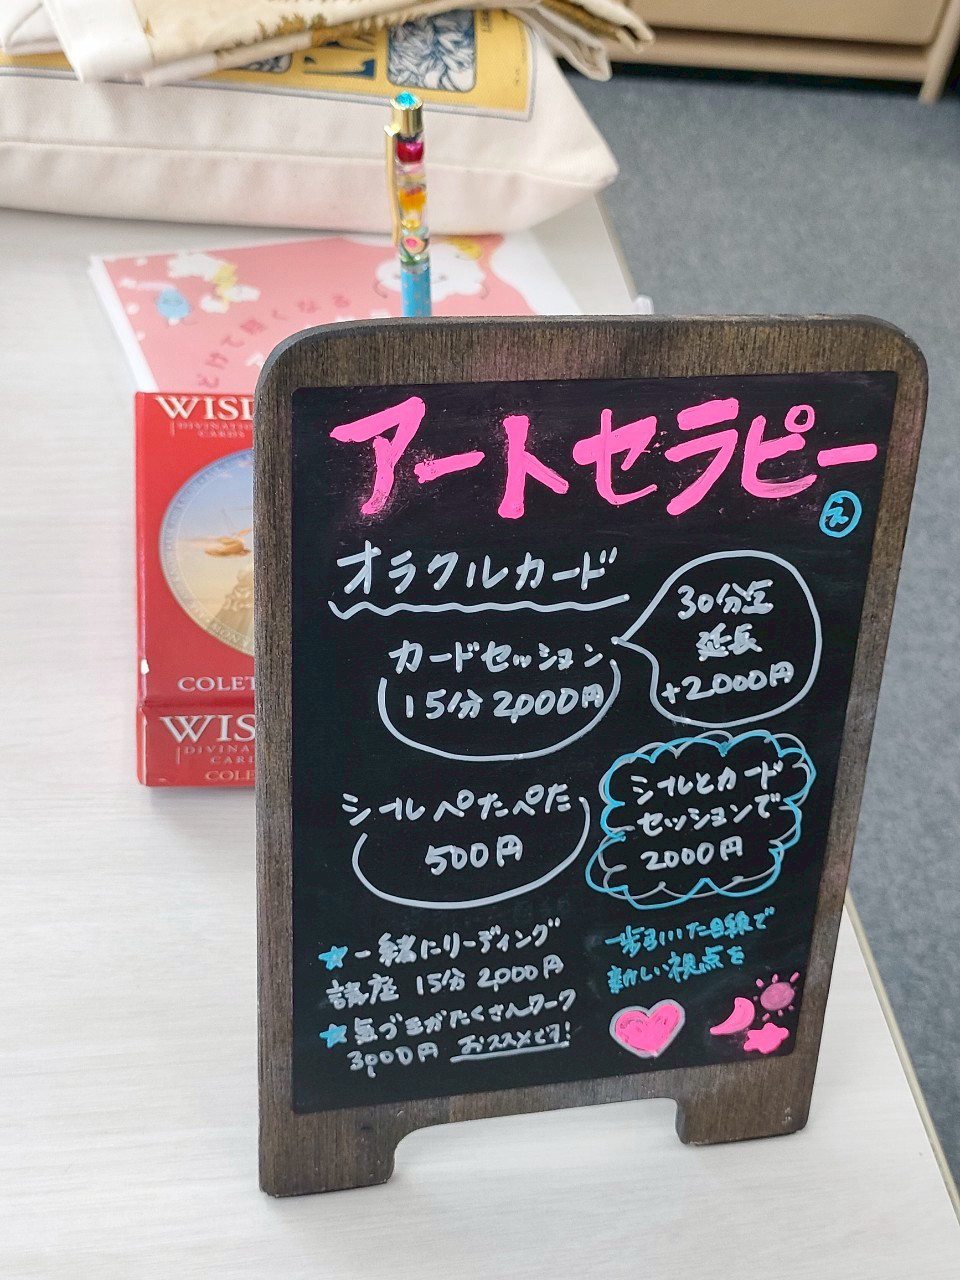 アートセラピー
え
オラクルカード
カードセッション
15分 2,000円
30分迄
延長
+2000円
シールぺたぺた
500円
シールとカード
セッションで
2000円
★一緒にリーディング
講座 15分 2,000円
★気づきがたくさんワーク
3,000円 おススメです!
一歩引いた目線で
新しい視点を
WIS
DIVINATIO
CARDS
COLET
WIS
DIVINA
CAR
COLE